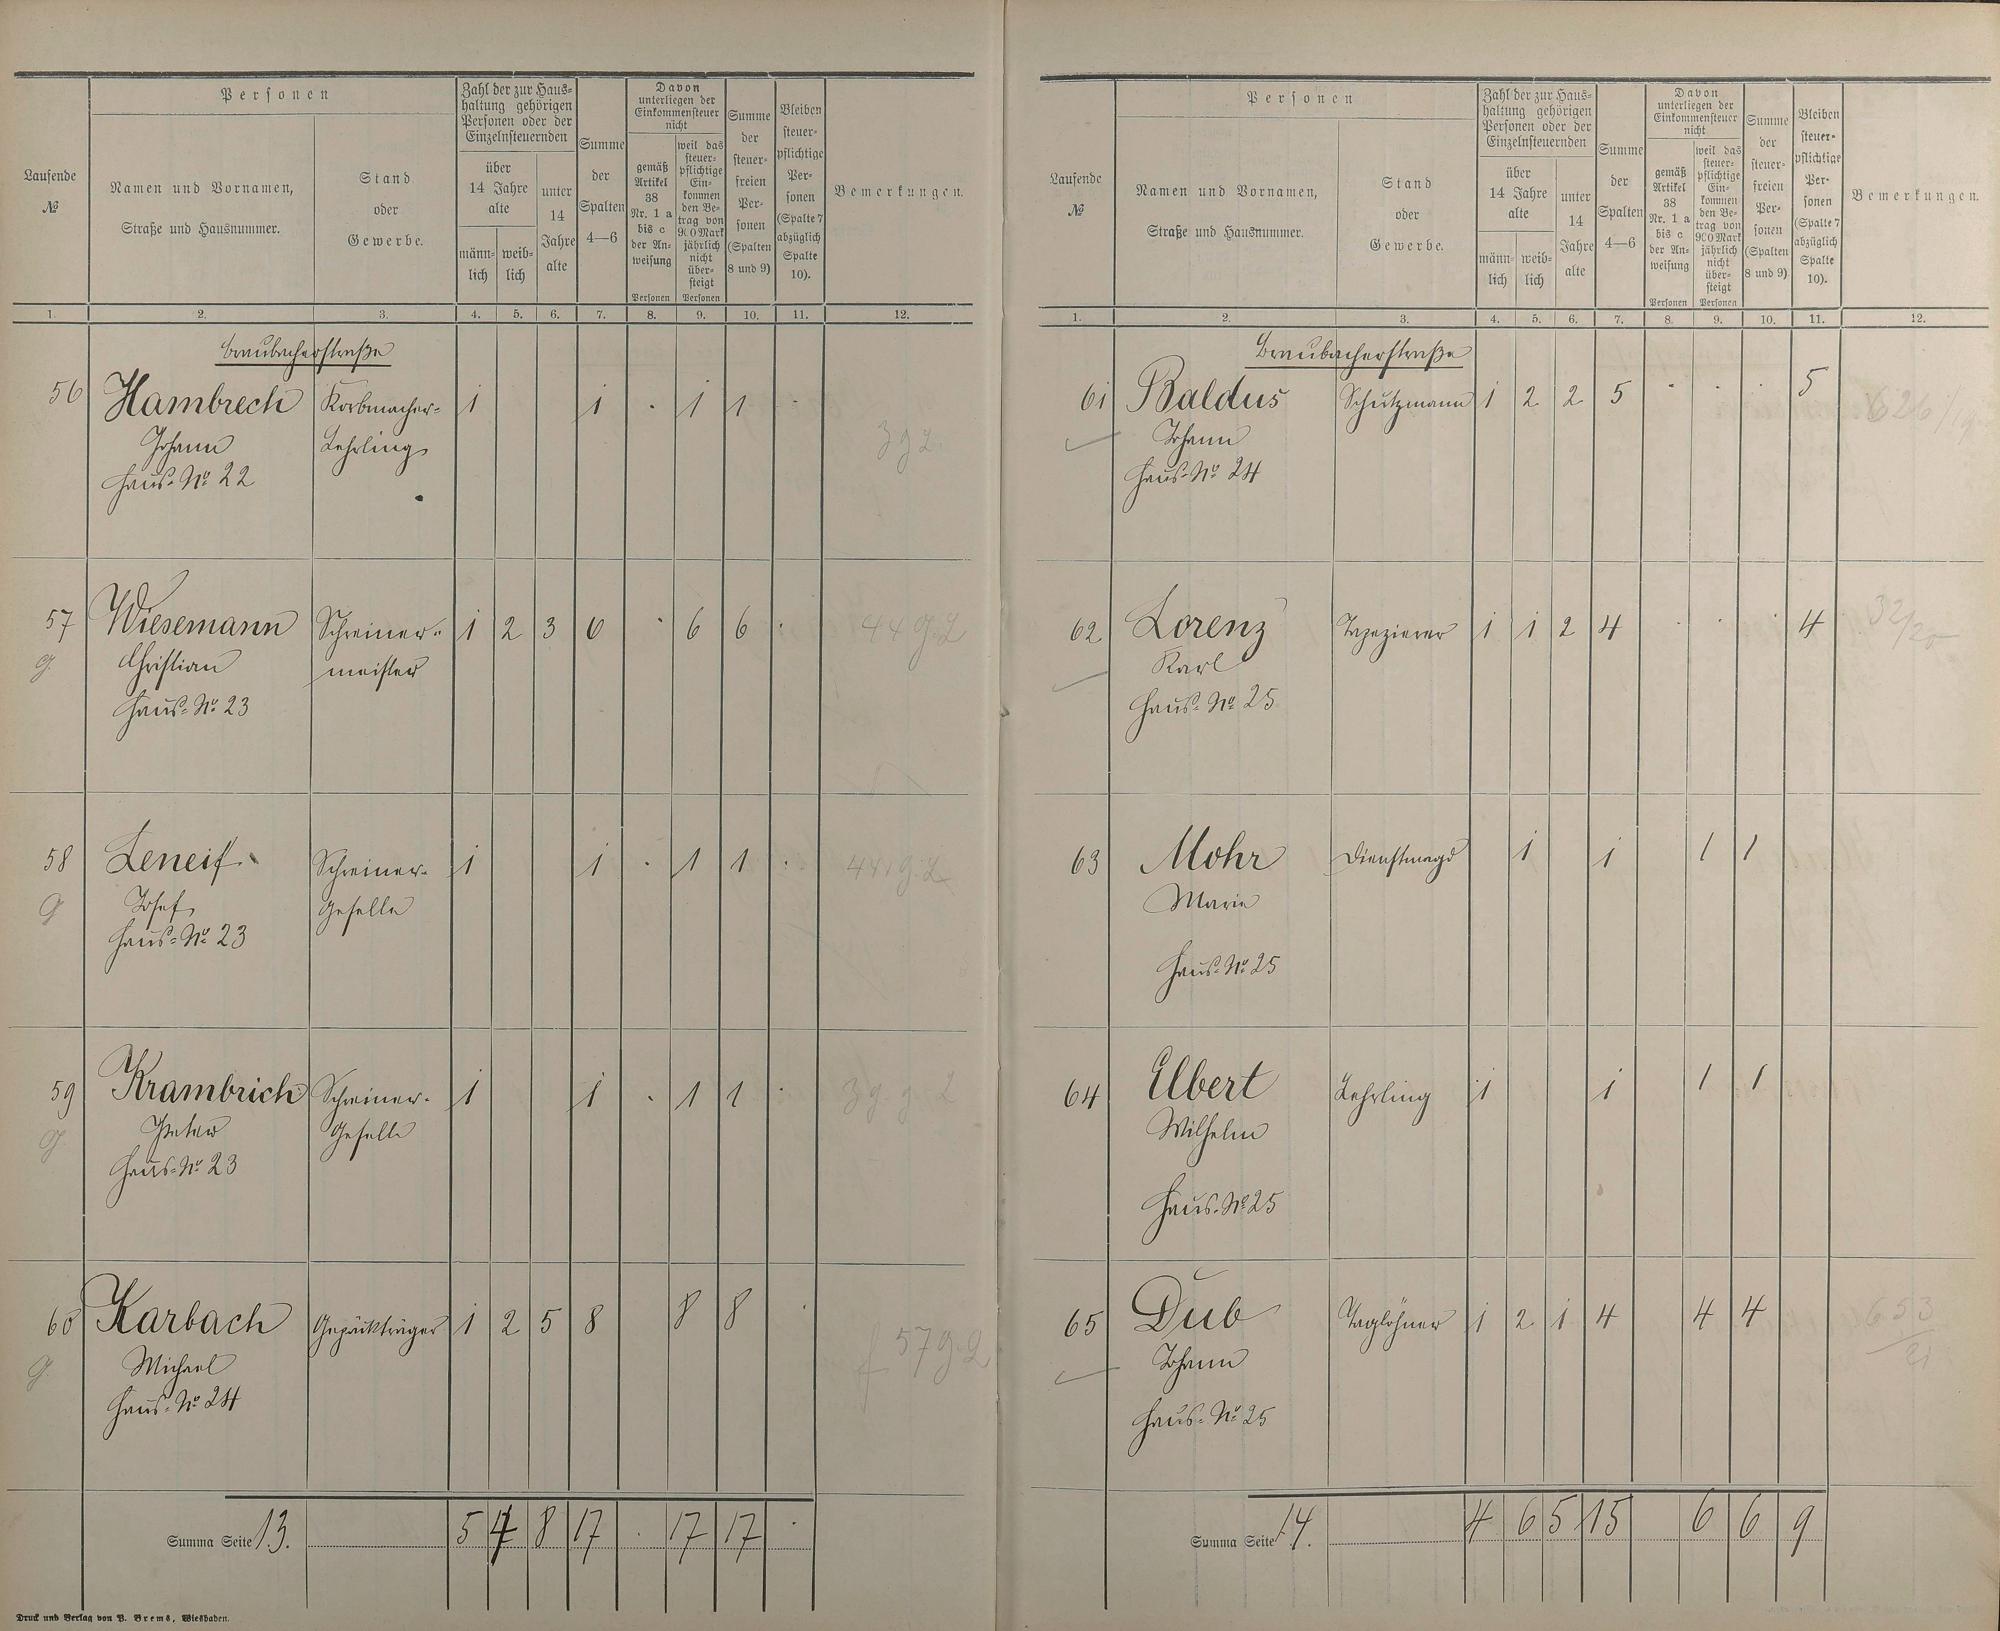 Laufende
№
Personen
Namen und Vornamen,
Straße und Hausnummer.
Stand
oder
Gewerbe.
Zahl der zur Haus-
haltung gehörigen
Personen oder der
Einzelnsteuernden
über
14 Jahre
alte
männ-
lich
weib-
lich
unter
14
Jahre
alte
Summe
der
Spalten
4—6
Davon
unterliegen der
Einkommensteuer
nicht
gemäß
Artikel
38
Nr. 1 a
bis c
der An-
weisung
Personen
weil das
steuer-
pflichtige
Ein-
kommen
den Be-
trag von
900 Mark
jährlich
nicht
über-
steigt
Personen
Summe
der
steuer-
freien
Per-
sonen
(Spalten
8 und 9)
Bleiben
steuer-
pflichtige
Per-
sonen
(Spalte 7
abzüglich
Spalte
10).
Bemerkungen.
1. 2. 3. 4. 5. 6. 7. 8. 9. 10. 11. 12.
Braubacherstraße
56 Hambrech Korbmacher- 1 1 · 1 1 ·
Johann Lehrling
Haus-№ 22
57 Wiesemann Schreiner- 1 2 3 6 · 6 6 · 44 g. L
g. Christian meister
Haus-№ 23
58 Leneif Schreiner- 1 1 · 1 1 ·
g Josef Geselle
Haus-№ 23
59 Krambrich Schreiner- 1 1 · 1 1 ·
g Peter Geselle
Haus-№ 23
60 Karbach Gepäckträger 1 2 5 8 8 8 · 57 g. L
g. Michael
Haus-№ 24
Summa Seite 13. 5 4 8 17 · 17 17 ·
Druck und Verlag von P. Brems, Wiesbaden.
Laufende
№
Personen
Namen und Vornamen,
Straße und Hausnummer.
Stand
oder
Gewerbe.
Zahl der zur Haus-
haltung gehörigen
Personen oder der
Einzelnsteuernden
über
14 Jahre
alte
männ-
lich
weib-
lich
unter
14
Jahre
alte
Summe
der
Spalten
4—6
Davon
unterliegen der
Einkommensteuer
nicht
gemäß
Artikel
38
Nr. 1 a
bis c
der An-
weisung
Personen
weil das
steuer-
pflichtige
Ein-
kommen
den Be-
trag von
900 Mark
jährlich
nicht
über-
steigt
Personen
Summe
der
steuer-
freien
Per-
sonen
(Spalten
8 und 9)
Bleiben
steuer-
pflichtige
Per-
sonen
(Spalte 7
abzüglich
Spalte
10).
Bemerkungen.
1. 2. 3. 4. 5. 6. 7. 8. 9. 10. 11. 12.
Braubacherstraße
61 Baldus Schutzmann 1 2 2 5 · · · 5
Johann
Haus-№ 24
62 Lorenz Tapezierer 1 1 2 4 · · · 4 32/20
Karl
Haus-№ 25
63 Mohr Dienstmagd 1 1 1 1
Marie
Haus-№ 25
64 Elbert Lehrling 1 1 1 1
Wilhelm
Haus-№ 25
65 Dub Taglöhner 1 2 1 4 4 4
Johann
Haus-№ 25
Summa Seite 14. 4 6 5 15 6 6 9